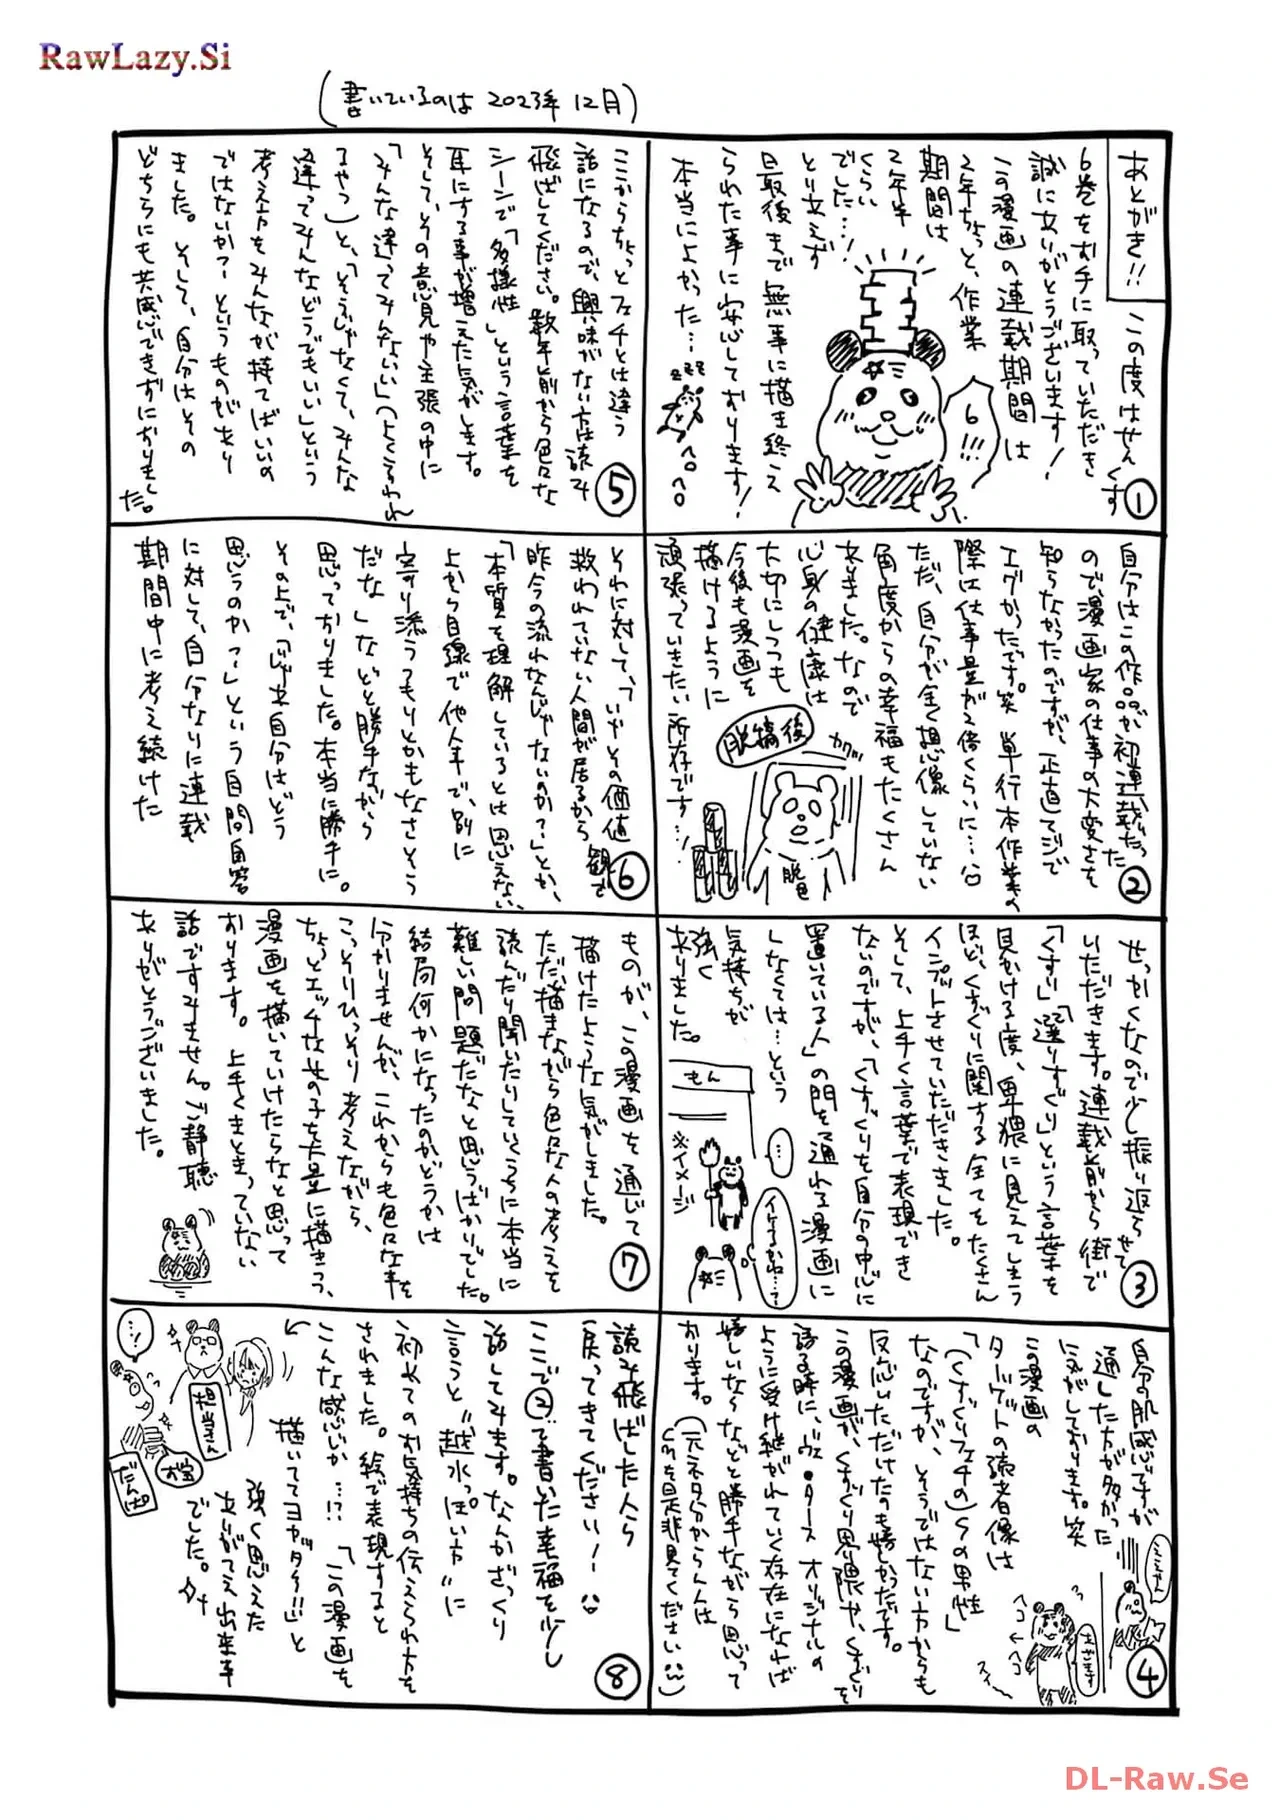 RawLazy.Si
(書いているのは 2023年 12月)
あとがき!!
この度はせんくす
6巻をお手に取っていただき
誠にありがとうございます!
この漫画の連載期間は
2年ちょっと、作業
期間は
2年半
くらい
でした…!
とりあえず
最後まで無事に描き終え
られた事に安心しております!
本当によかった…
zzz
6!!!
①
自分はこの作品が初連載だった
ので漫画家の仕事の大変さを
知らなかったのですが、正直マジで
エグかったです。笑 単行本作業の
際は仕事量が2倍くらいに…
ただ、自分が全く想像していない
角度からの幸福もたくさん
ありました。なので
心身の健康は
大切にしつつも
今後も漫画を
描けるように
頑張っていきたい所存です…!
脱稿後
脱色
②
せっかくなので少し振り返らせて
いただきます。連載前から街で
「くすり」「選りすぐり」という言葉を
見かける度、卑猥に見えてしまう
ほど、くすぐりに関する全てをたくさん
インプットさせていただきました。
そして、上手く言葉で表現でき
ないのですが、「くすぐりを自分の中心に
置いている人」の門を通れる漫画に
しなくては…という
気持ちが
強く
ありました。
もん
※イメージ
…
イケるかね…?
③
自分の肌感ですが
通した方が多かった
気がしております。笑
この漫画の
ターゲットの読者像は
「(くすぐりフェチの)Sの男性」
なのですが、そうではない方からも
反応いただけたのも嬉しかったです。
この漫画が、くすぐり界隈や、くすぐりを
語る時に、ヴェ・タース オリジナルの
ように受け継がれていく存在になれば
嬉しいななどと勝手ながら思って
おります。(元ネタ分からん人は
CMを是非見てください)
ええやん
あざます
スイー
ペコ
ペコ
④
ここからちょっとフェチとは違う
話になるので、興味がない方は読み
飛ばしてください。数年前から色々な
シーンで「多様性」という言葉を
耳にする事が増えた気がします。
そして、その意見や主張の中に
「みんな違ってみんないい」(よくいわれ
るやつ)と、「そうじゃなくて、みんな
違ってみんなどうでもいい」という
考え方をみんなが持てばいいの
ではないか?というものがあり
ました。そして、自分はその
どちらにも共感できずにおりまし
た。
⑤
それに対して、「いやその価値観で
救われていない人間が居るから
昨今の流れなんじゃないのか?」とか、
「本質を理解しているとは思えない、
上から目線で他人事で、別に
寄り添うつもりとかもなさそう
だな」などと勝手ながら
思っておりました。本当に勝手に。
その上で、「じゃあ自分はどう
思うのか?」という自問自答
に対して、自分なりに連載
期間中に考え続けた
⑥
ものが、この漫画を通じて
描けたような気がしました。
ただ、描きながら色々な人の考えを
読んだり聞いたりしていくうちに本当に
難しい問題だなと思うばかりでした。
結局何かになったのかどうかは
分かりませんが、これからも色々な事を
こっそりひっそり考えながら、
ちょっとエッチな女の子を大量に描きつつ、
漫画を描いていけたらなと思って
おります。上手くまとまっていない
話ですみません。ご静聴
ありがとうございました。
⑦
読み飛ばした人ら
戻ってきてくださいー!
ここで②で書いた幸福を少し
話してみます。なんかざっくり
言うと"越水っぽい方"に
初めてのお気持ちの伝えられ方を
されました。絵で表現すると
こんな感じか…!?「この漫画を
描いててヨカッタ!!」と
強く思えた
ありがてえ出来事
でした。
…!
担当さん
お宝
だんぱ
⑧
DL-Raw.Se